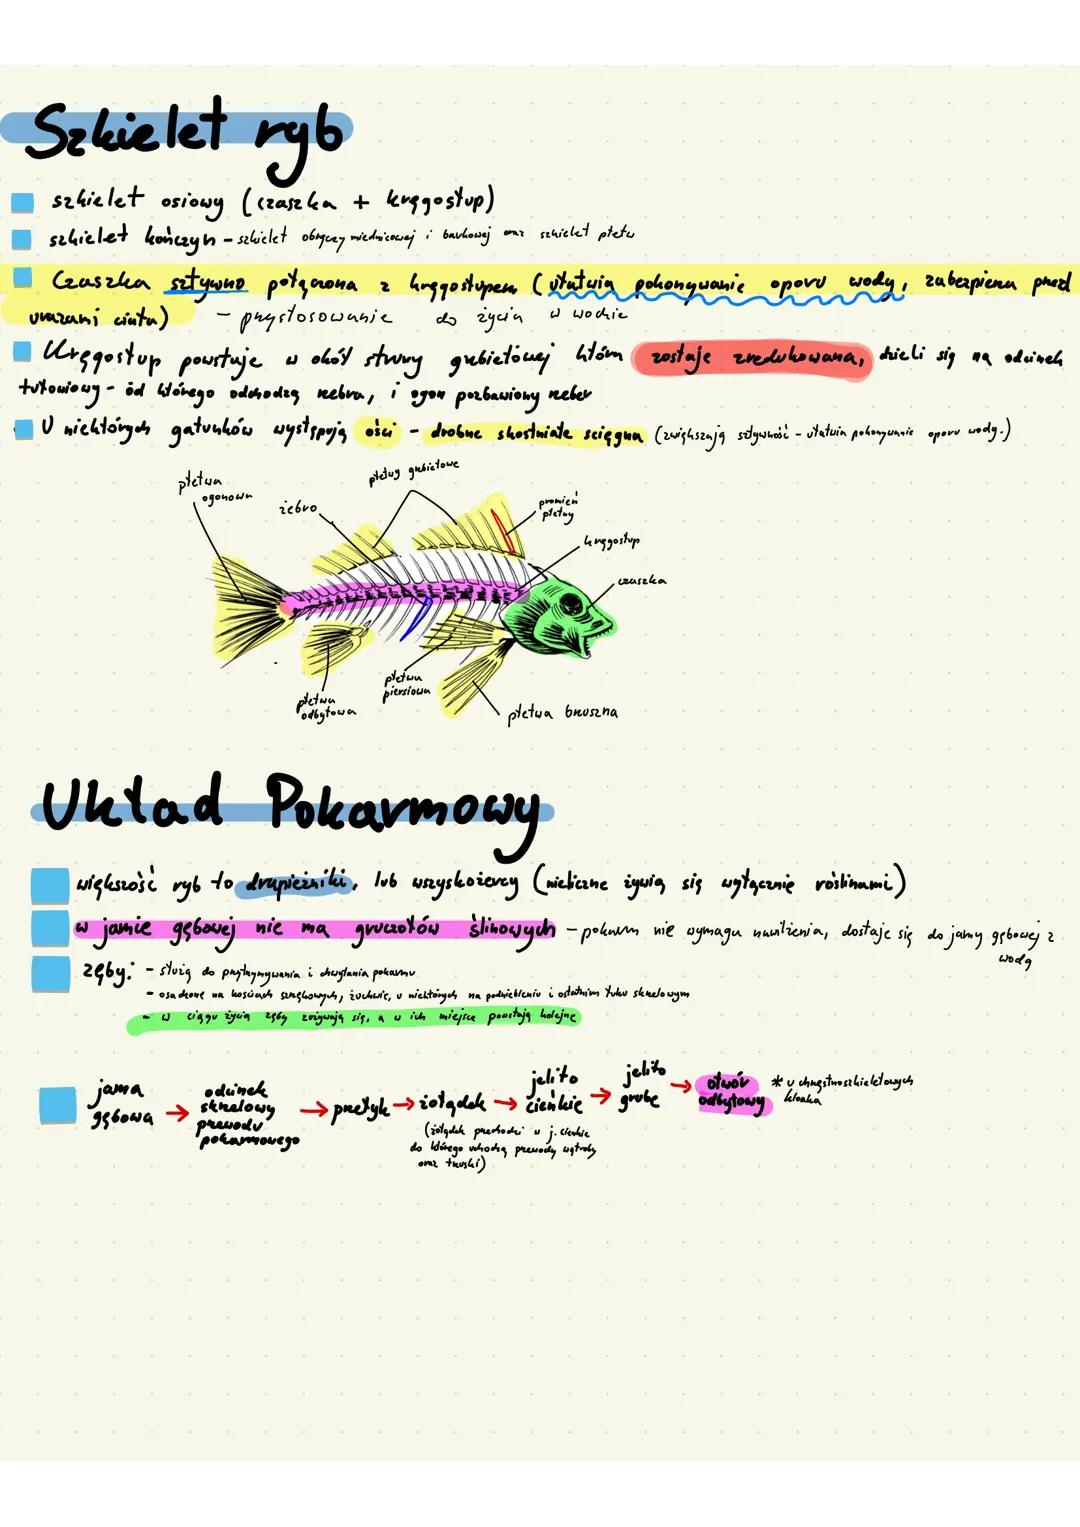 Szkielet ryb
szkielet osiowy (czaszka + kręgosłup)
szkielet kończyn - szkielet obręczy miednicowej i barkowej oraz szkielet płetw
Czaszka sztywno połączona z kręgosłupem (ułatwia pokonywanie oporu wody, zabezpiecza przed
urazami ciała) - przystosowanie do życia w wodzie
Kręgosłup powstuje w okół struny grzbietowej która zostaje zredukowana, dzieli się na odcinek
tułowiowy - od którego odchodzą żebra, i ogon pozbawiony żeber
U niektórych gatunków występują ości - drobne skostniałe ścięgna (zwiększają sztywność - ułatwia pokonywanie oporu wody.)
płetwy grzbietowe
płetwa
ogonowa
żebro
promień
płetwy
kręgosłup
czaszka
płetwa
piersiowa
płetwa
odbytowa
płetwa brzuszna
Układ Pokarmowy
większość ryb to drapieżniki, lub wszyskożercy (nieliczne żywią się wyłącznię roślinami)
w jamie gębowej nie ma gruczołów ślinowych - pokarm nie wymaga nawilżenia, dostaje się do jamy gębowej z
wodą
zęby: - służą do przytrzymywania i chwytania pokarmu
- osadzone na kościach szczękowych, żuchwie, u niektórych na podniebieniu i ostatnim łuku skrzelowym
- w ciągu życia zęby zużywają się, a w ich miejsce powstają kolejne
jama
gębowa → odcinek
skrzelowy
przewodu
pokarmowego → przełyk → żołądek → jelito
cienkie → jelito
grube → otwór
odbytowy * u chrzęstnoszkieletowych
kloaka
(żołądek przechodzi w j. cienkie
do którego wchodzą przewody wątroby
oraz trzustki)